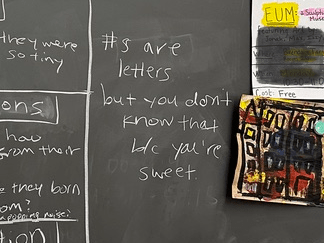 they were
so tiny
ons
how
from their
they born
om?
popping noise.
tion
#s are
letters
but you don't
know that
b/c you're
sweet.
EUM:
Cost: Free